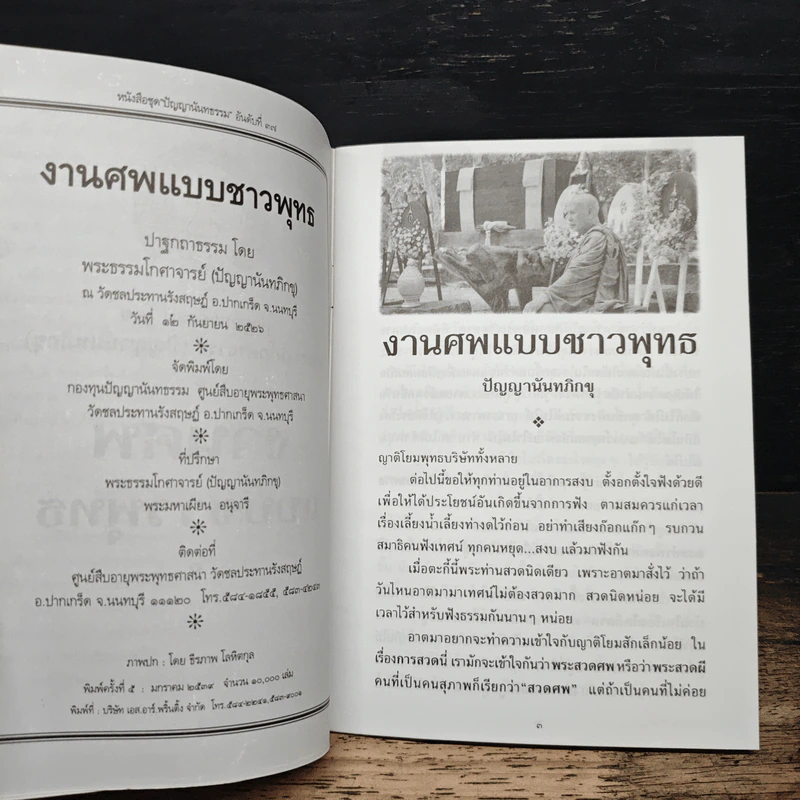 หนังสือชุด"ปัญญานันทธรรม" อันดับที่ ๓๗
งานศพแบบชาวพุทธ
ปาฐกถาธรรม โดย
พระธรรมโกศาจารย์ (ปัญญานันทภิกขุ)
ณ วัดชลประทานรังสฤษฎ์ อ.ปากเกร็ด จ.นนทบุรี
วันที่ ๑๒ กันยายน ๒๕๒๖
จัดพิมพ์โดย
กองทุนปัญญานันทธรรม ศูนย์สืบอายุพระพุทธศาสนา
วัดชลประทานรังสฤษฎ์ อ.ปากเกร็ด จ.นนทบุรี
ที่ปรึกษา
พระธรรมโกศาจารย์ (ปัญญานันทภิกขุ)
พระมหาเผียน อนุจารี
ติดต่อที่
ศูนย์สืบอายุพระพุทธศาสนา วัดชลประทานรังสฤษฎ์
อ.ปากเกร็ด จ.นนทบุรี ๑๑๑๒๐ โทร.๕๘๔-๑๘๕๕, ๕๘๓-๔๒๔๓
ภาพปก : โดย ธีรภาพ โลหิตกุล
พิมพ์ครั้งที่ ๕ : มกราคม ๒๕๓๙ จำนวน ๑๐,๐๐๐ เล่ม
พิมพ์ที่ : บริษัท เอส.อาร์.พริ้นติ้ง จำกัด โทร.๕๘๔-๒๒๔๑,๕๘๓-๙๐๐๑
งานศพแบบชาวพุทธ
ปัญญานันทภิกขุ
ญาติโยมพุทธบริษัททั้งหลาย
ต่อไปนี้ขอให้ทุกท่านอยู่ในอาการสงบ ตั้งอกตั้งใจฟังด้วยดี
เพื่อให้ได้ประโยชน์อันเกิดขึ้นจากการฟัง ตามสมควรแก่เวลา
เรื่องเลี้ยงน้ำเลี้ยงท่างดไว้ก่อน อย่าทำเสียงก๊อกแก๊กๆ รบกวน
สมาธิคนฟังเทศน์ ทุกคนหยุด...สงบ แล้วมาฟังกัน
เมื่อตะกี้นี้พระท่านสวดนิดเดียว เพราะอาตมาสั่งไว้ ว่าถ้า
วันไหนอาตมามาเทศน์ไม่ต้องสวดมาก สวดนิดหน่อย จะได้มี
เวลาไว้สำหรับฟังธรรมกันนานๆ หน่อย
อาตมาอยากจะทำความเข้าใจกับญาติโยมสักเล็กน้อย ใน
เรื่องการสวดนี่ เรามักจะเข้าใจกันว่าพระสวดศพ หรือว่าพระสวดผี
คนที่เป็นคนสุภาพก็เรียกว่า"สวดศพ" แต่ถ้าเป็นคนที่ไม่ค่อย
๓